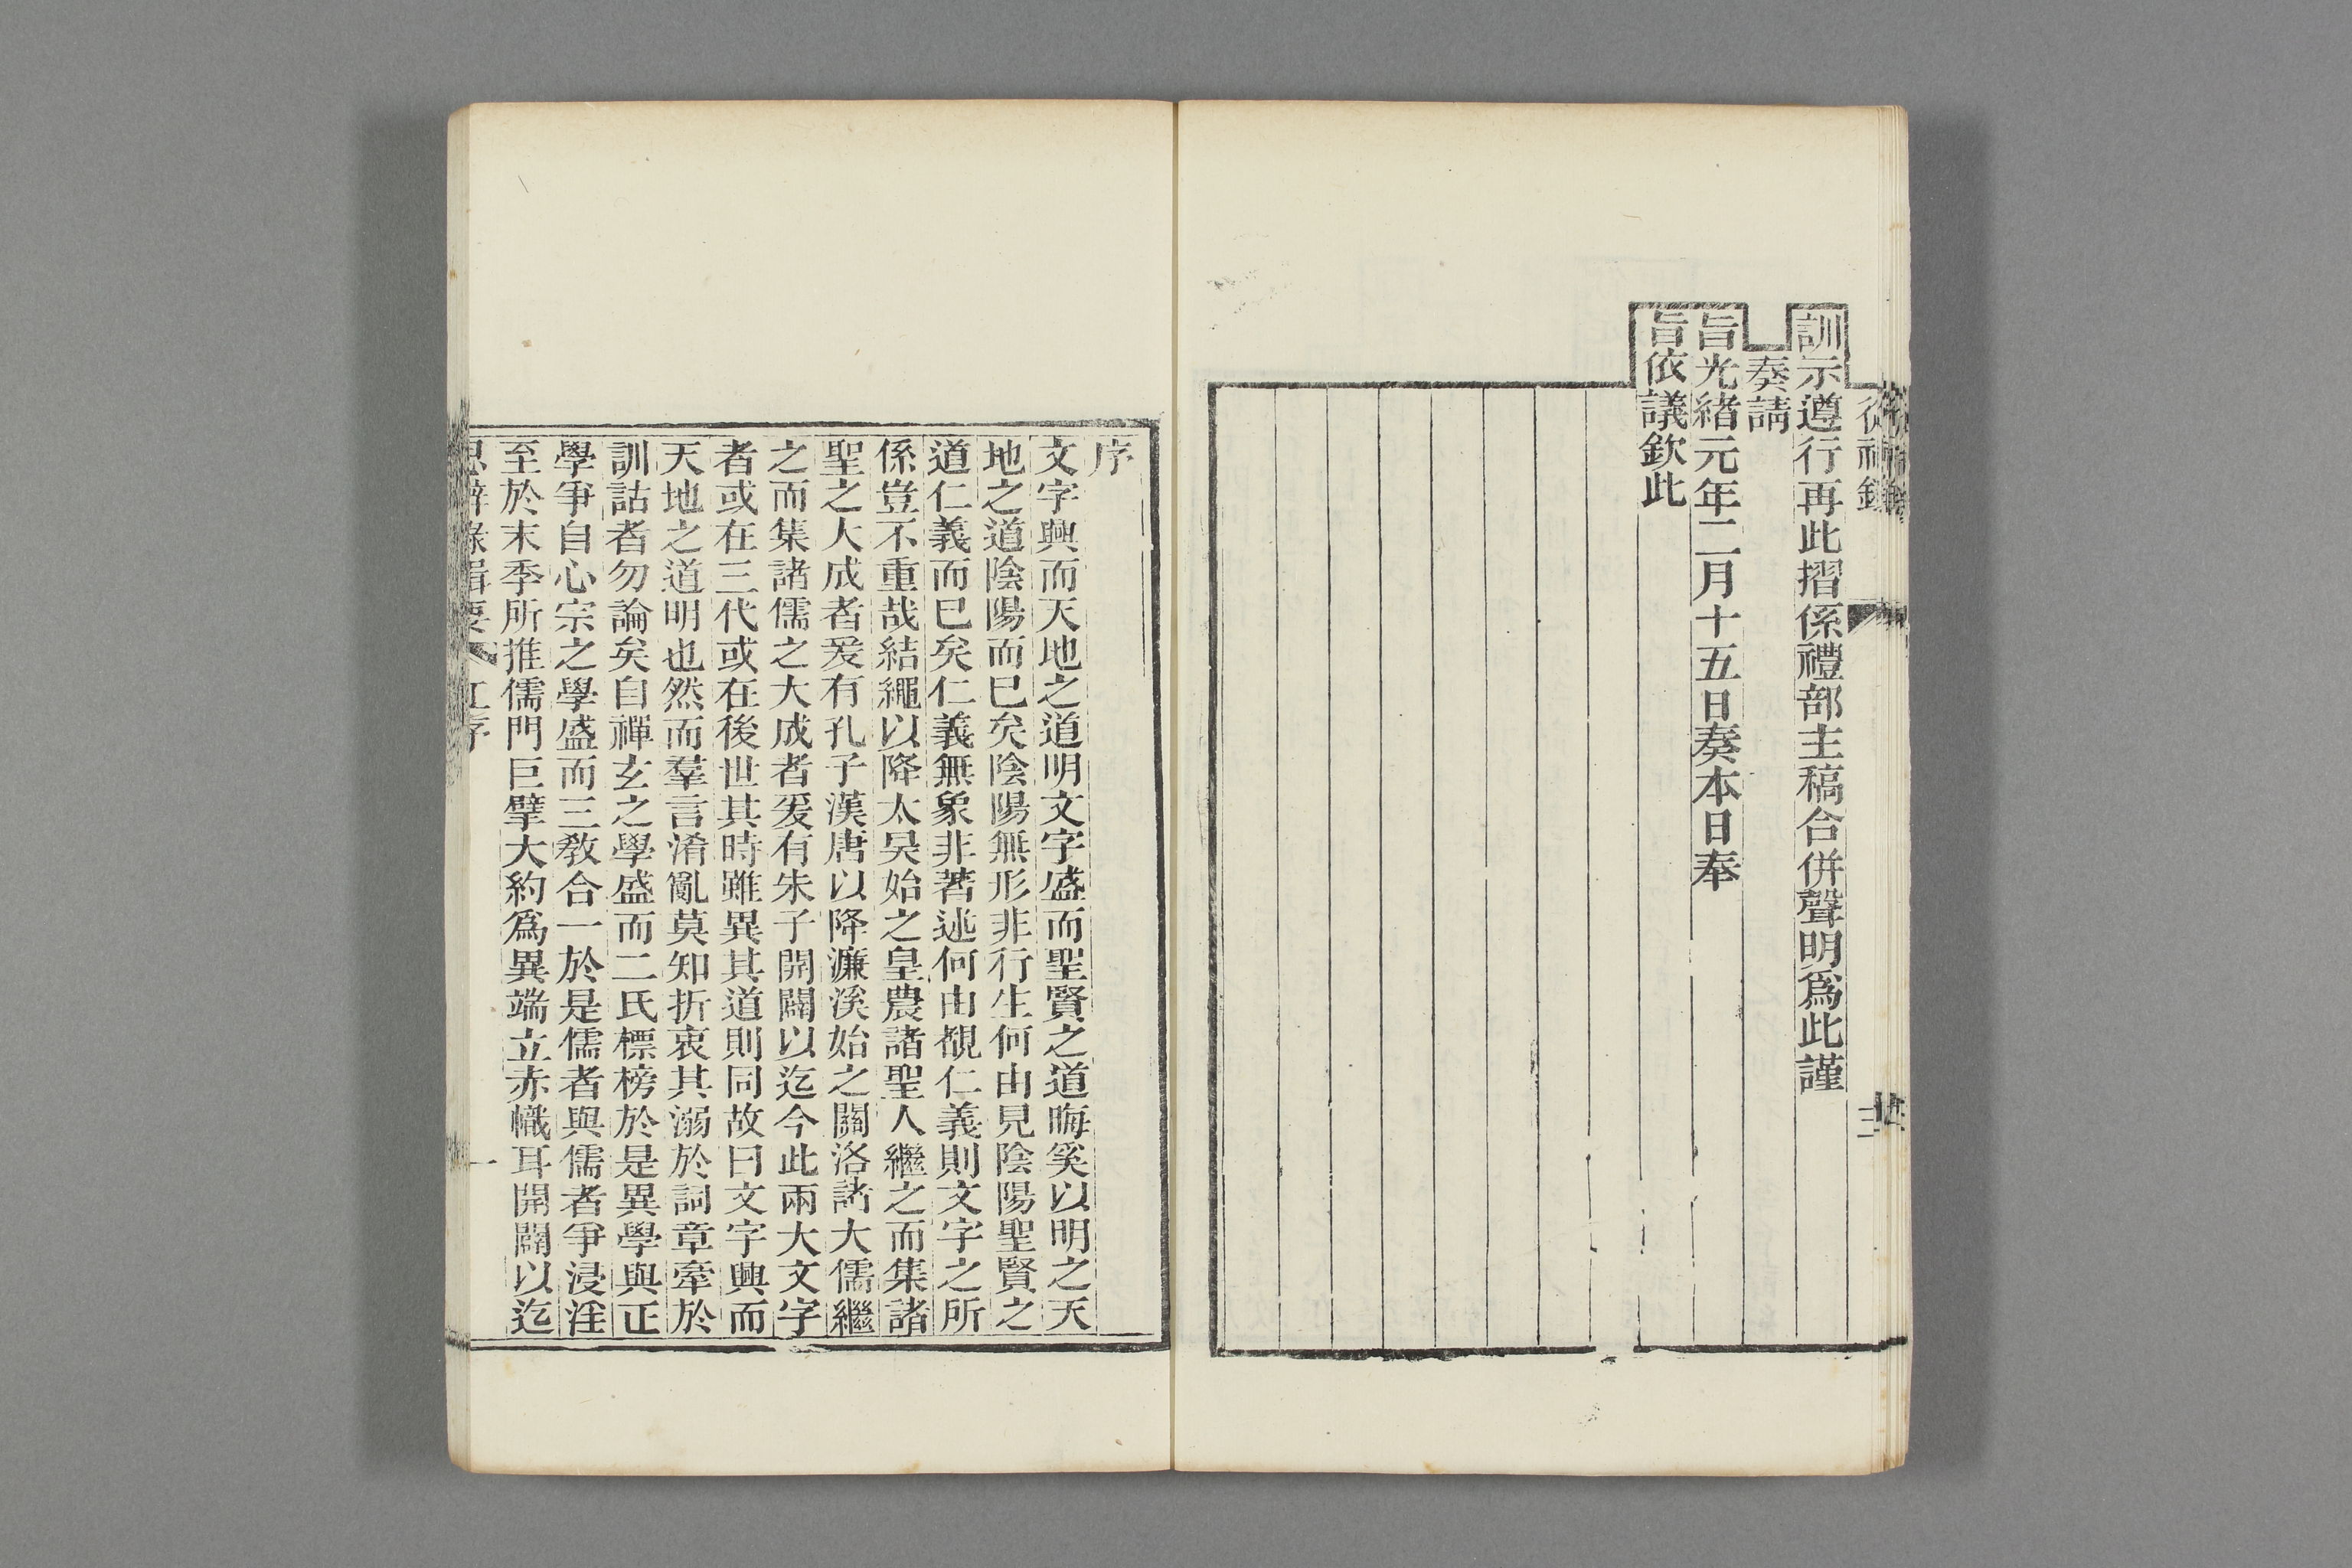 訓示遵行再此摺係禮部主稿合併聲明爲此謹
奏請
旨光緒元年二月十五日奏本日奉
旨依議欽此
序
文字興而天地之道明文字盛而聖賢之道晦奚以明之天
地之道陰陽而已矣陰陽無形非行生何由見陰陽聖賢之
道仁義而已矣仁義無象非著述何由覩仁義則文字之所
係豈不重哉結繩以降太昊始之皇農諸聖人繼之而集諸
聖之大成者爰有孔子漢唐以降濂溪始之關洛諸大儒繼
之而集諸儒之大成者爰有朱子開闢以迄今此兩大文字
者或在三代或在後世其時雖異其道則同故曰文字興而
天地之道明也然而羣言淆亂莫知折衷其溺於詞章牽於
訓詁者勿論矣自禪玄之學盛而二氏標榜於是異學與正
學爭自心宗之學盛而三教合一於是儒者與儒者爭浸淫
至於末季所推儒門巨擘大約爲異端立赤幟耳開闢以迄
思辨錄輯要 江序 一